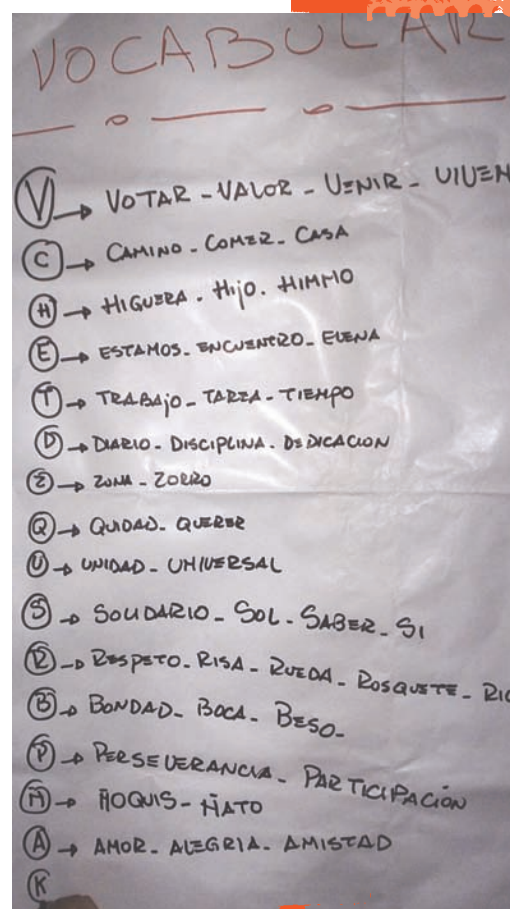 VOCABULAR
V → VOTAR - VALOR - VENIR - VIVEN
C → CAMINO - COMER - CASA
H → HIGUERA - HIJO - HIMNO
E → ESTAMOS - ENCUENTRO - ELENA
T → TRABAJO - TAREA - TIEMPO
D → DIARIO - DISCIPLINA - DEDICACION
Z → ZONA - ZORRO
Q → QUIDAD - QUERER
U → UNIDAD - UNIVERSAL
S → SOLIDARIO - SOL - SABER - SI
R → RESPETO - RISA - RUEDA - ROSQUETE - RIO
B → BONDAD - BOCA - BESO -
P → PERSEVERANCIA - PARTICIPACIÓN
Ñ → ÑOQUIS - ÑATO
A → AMOR - ALEGRIA - AMISTAD
K